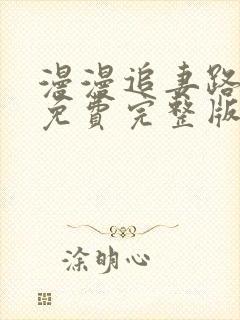 漫漫追妻路
免費完整版
涂明心